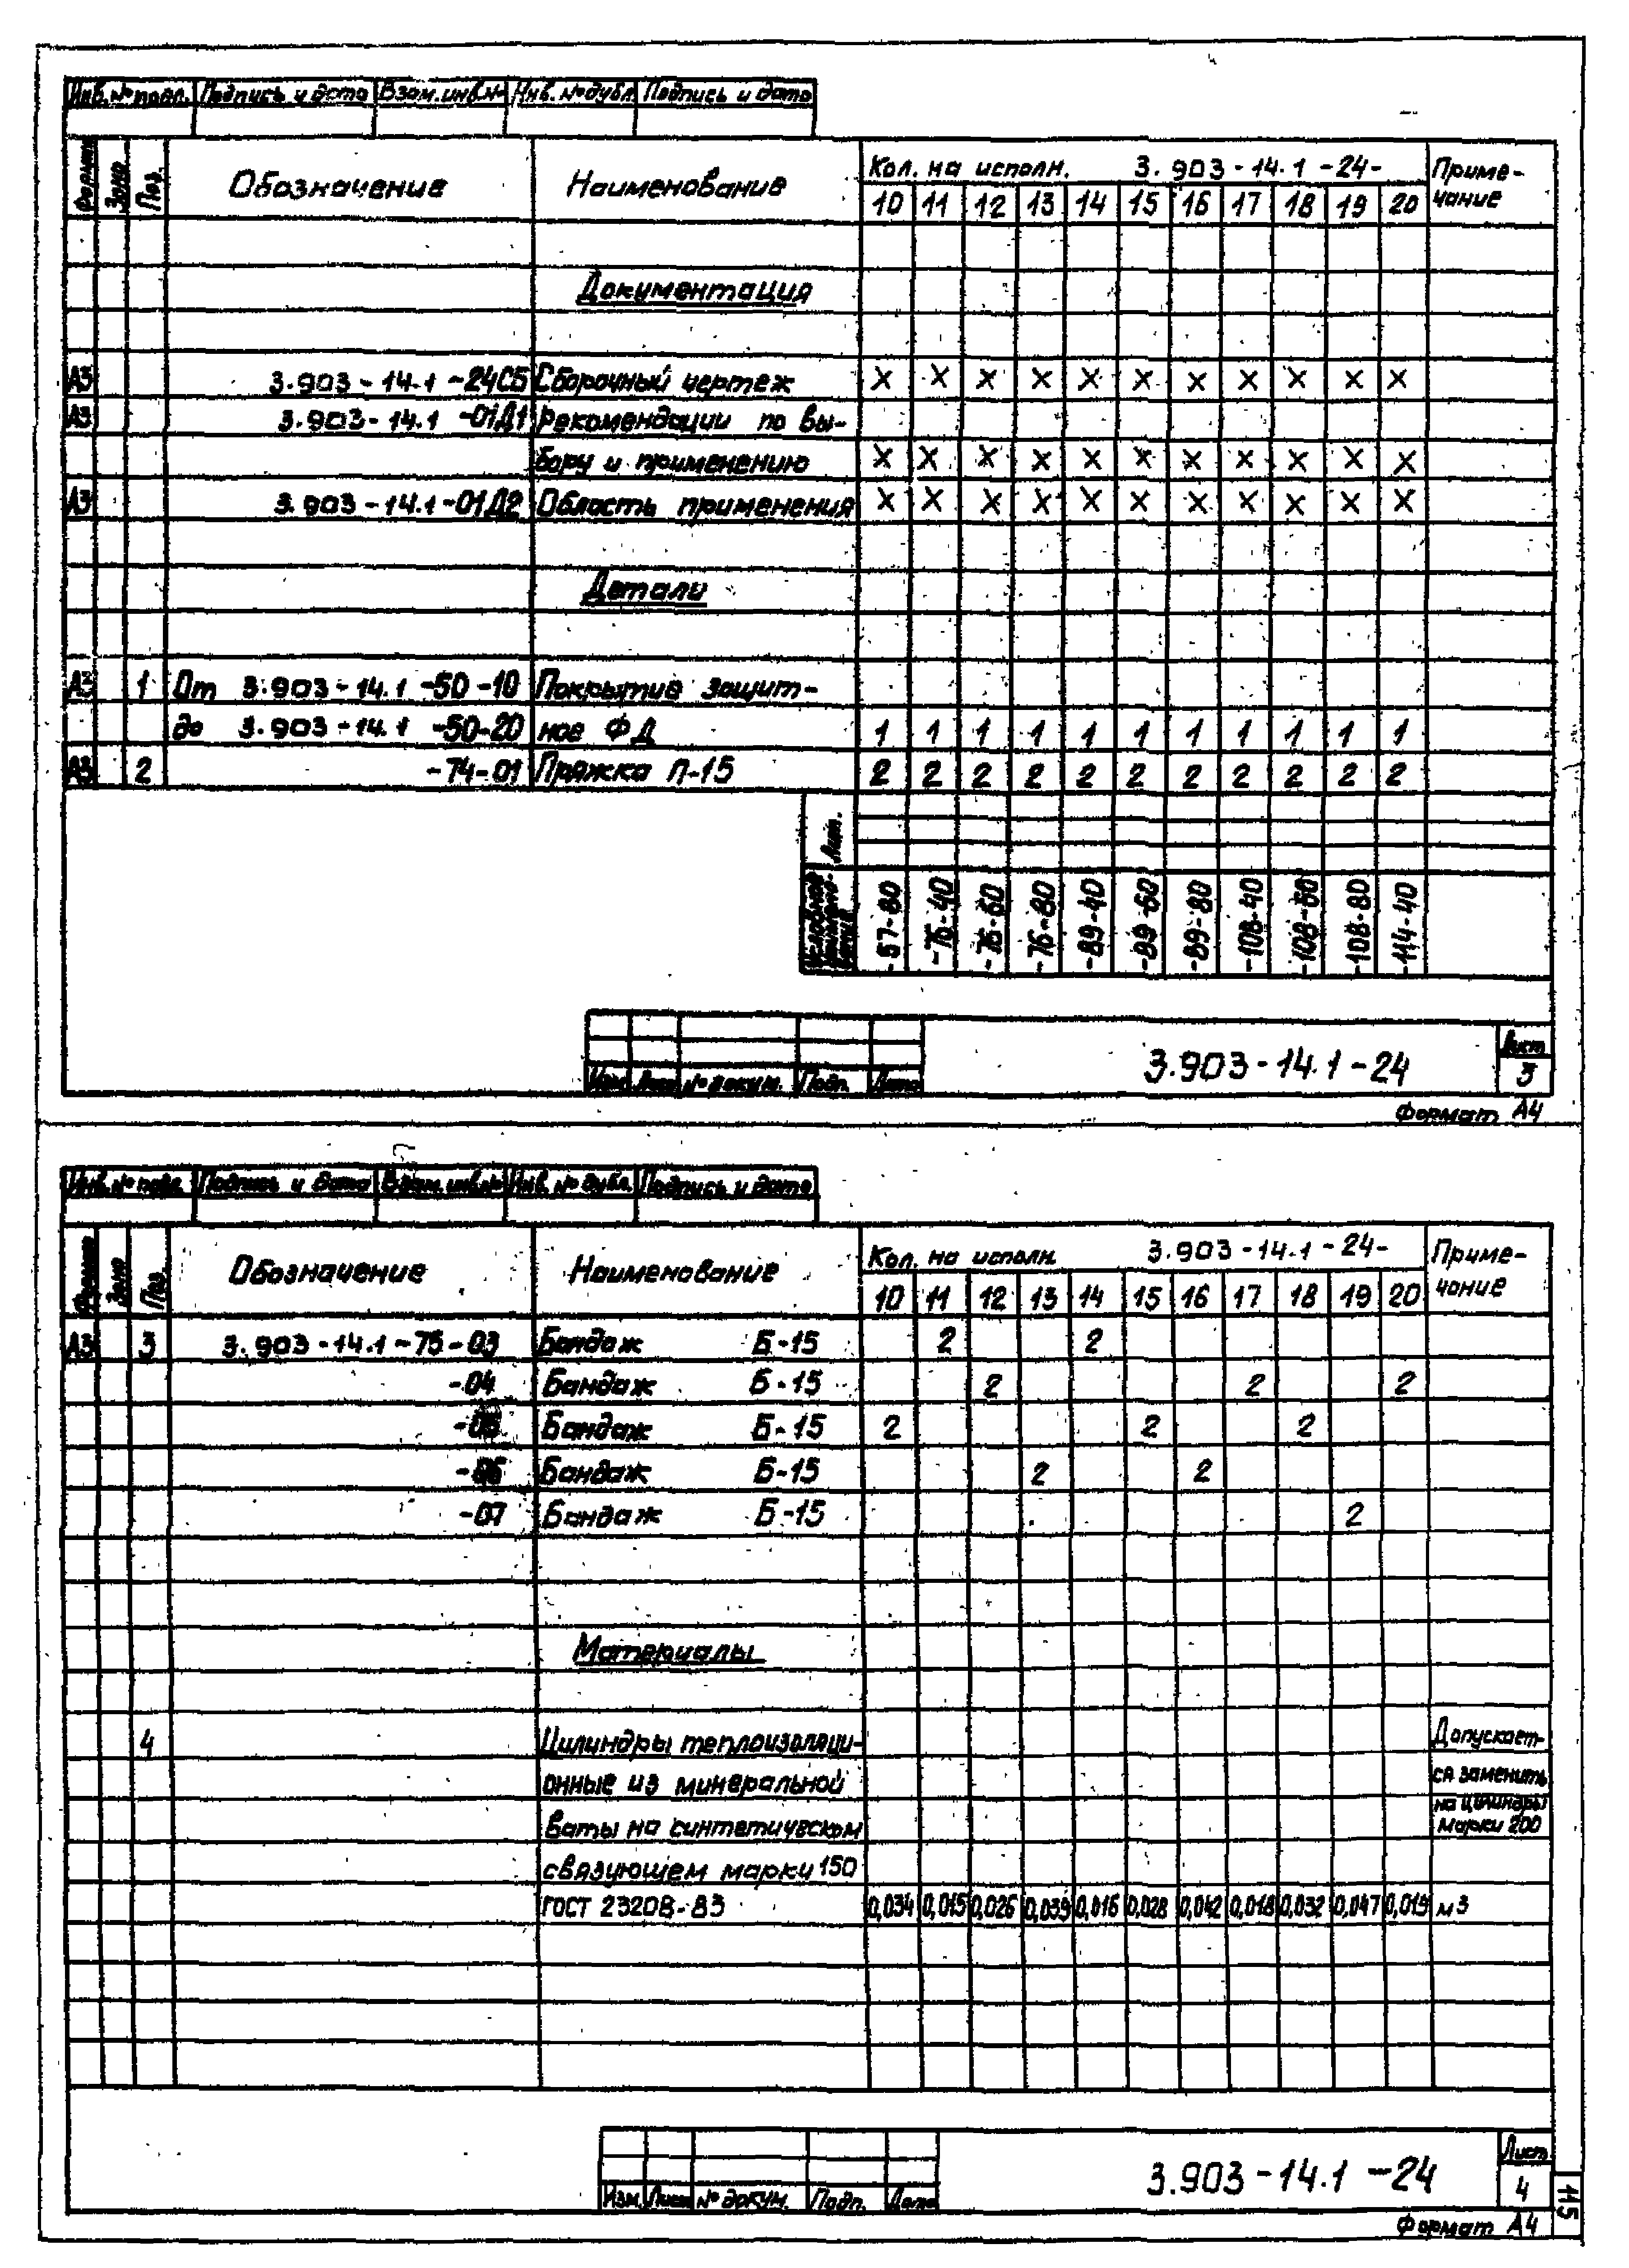 Инв.№ подл. Подпись и дата Взам.инв.№ Инв.№дубл. Подпись и дата
Формат Зона Поз. Обозначение Наименование Кол. на исполн. 3.903-14.1-24- Приме-
10 11 12 13 14 15 16 17 18 19 20 чание
Документация
А3 3.903-14.1-24СБ Сборочный чертеж X X X X X X X X X X X
А3 3.903-14.1-01Д1 Рекомендации по вы-
бору и применению X X X X X X X X X X X
А3 3.903-14.1-01Д2 Область применения X X X X X X X X X X X
Детали
А3 1 От 3.903-14.1-50-10 Покрытие защит-
до 3.903-14.1-50-20 ное ФД 1 1 1 1 1 1 1 1 1 1 1
А3 2 -74-01 Пряжка П-15 2 2 2 2 2 2 2 2 2 2 2
Лит.
-57-80 -76-40 -76-60 -76-80 -89-40 -89-60 -89-80 -108-40 -108-60 -108-80 -114-40
3.903-14.1-24 Лист
Изм. Лист № докум. Подп. Дата 3
Формат А4
Инв.№ подл. Подпись и дата Взам.инв.№ Инв.№ дубл. Подпись и дата
Формат Зона Поз. Обозначение Наименование Кол. на исполн. 3.903-14.1-24- Приме-
10 11 12 13 14 15 16 17 18 19 20 чание
А3 3 3.903-14.1-75-03 Бандаж Б-15 2 2
-04 Бандаж Б-15 2 2 2
-05 Бандаж Б-15 2 2 2
-06 Бандаж Б-15 2 2
-07 Бандаж Б-15 2
Материалы
4 Цилиндры теплоизоляци- Допускает-
онные из минеральной ся заменить
на цилиндры
ваты на синтетическом марки 200
связующем марки 150
ГОСТ 23208-83 0,034 0,015 0,026 0,039 0,016 0,028 0,042 0,018 0,032 0,047 0,019 м3
3.903-14.1-24 Лист
Изм. Лист № докум. Подп. Дата 4
115
Формат А4